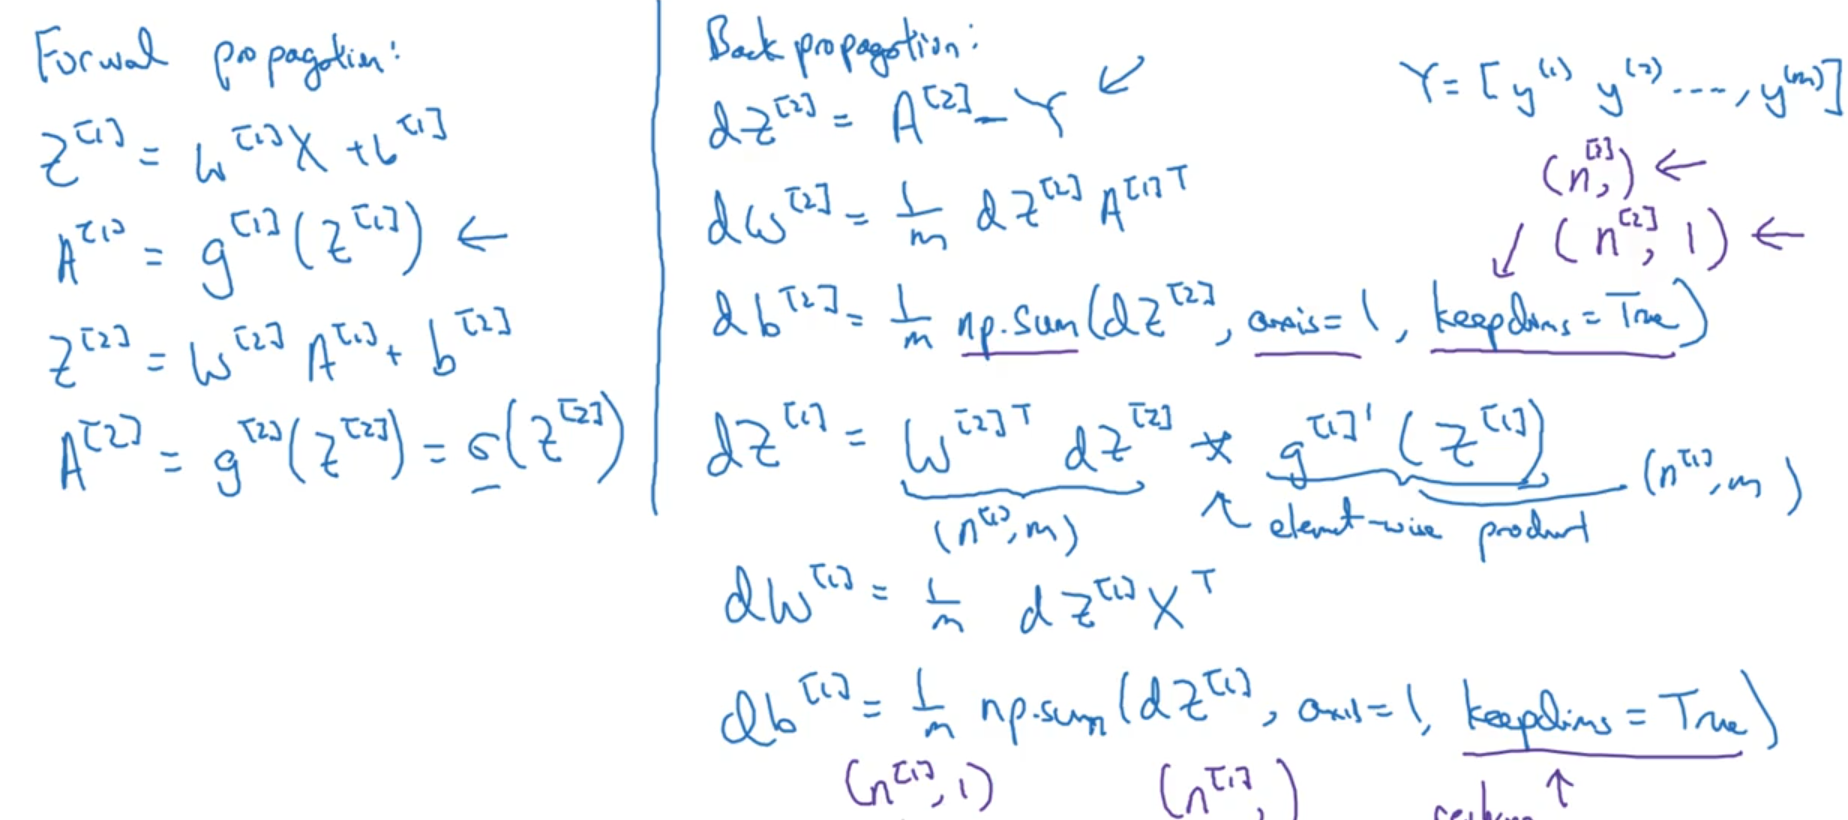 Forwal propagation:
Z^[1] = W^[1]X + b^[1]
A^[1] = g^[1](Z^[1]) ←
Z^[2] = W^[2] A^[1] + b^[2]
A^[2] = g^[2](Z^[2]) = σ(Z^[2])
Back propagation:
dZ^[2] = A^[2] - Y ↙
Y = [y^(1) y^(2) ...., y^(m)]
dW^[2] = 1/m dZ^[2] A^[1]T
(n^[2],) ←
↙ (n^[2], 1) ←
db^[2] = 1/m np.sum(dZ^[2], axis=1, keepdims=True)
dZ^[1] = W^[2]T dZ^[2] * g^[1]'(Z^[1])
(n^[1], m) ↖ element-wise product (n^[1], m)
dW^[1] = 1/m dZ^[1] X^T
db^[1] = 1/m np.sum(dZ^[1], axis=1, keepdims=True)
(n^[1], 1) (n^[1],) ↑